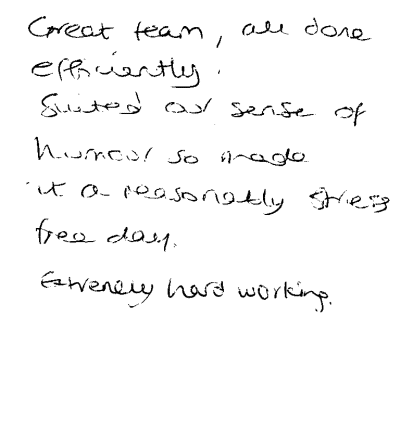 Great team, all done
efficiently.
Suited our sense of
humour so made
it a reasonably stress
free day.
Extremely hard working.